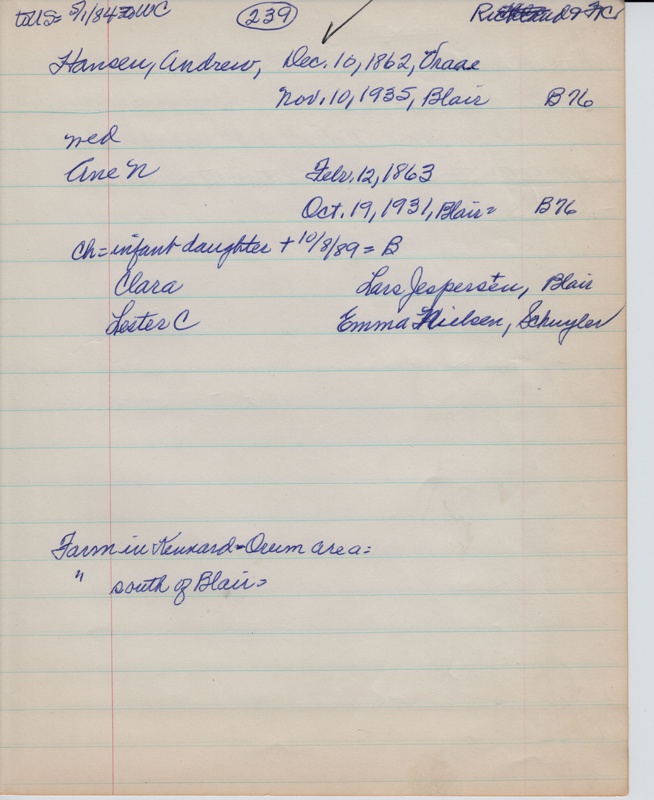 to US= 5/1/84 to WC 239
Hansen, Andrew, Dec. 10, 1862,
Nov. 10, 1935, Blair B76
med
Ane N Febr. 12, 1863
Oct. 19, 1931, Blair= B76
ch= infant daughter + 10/8/89= B
Clara Lars Jespersen, Blair
Lester C Emma Nielsen, Schuyler
Farm in Kennard-Orum area=
" south of Blair=